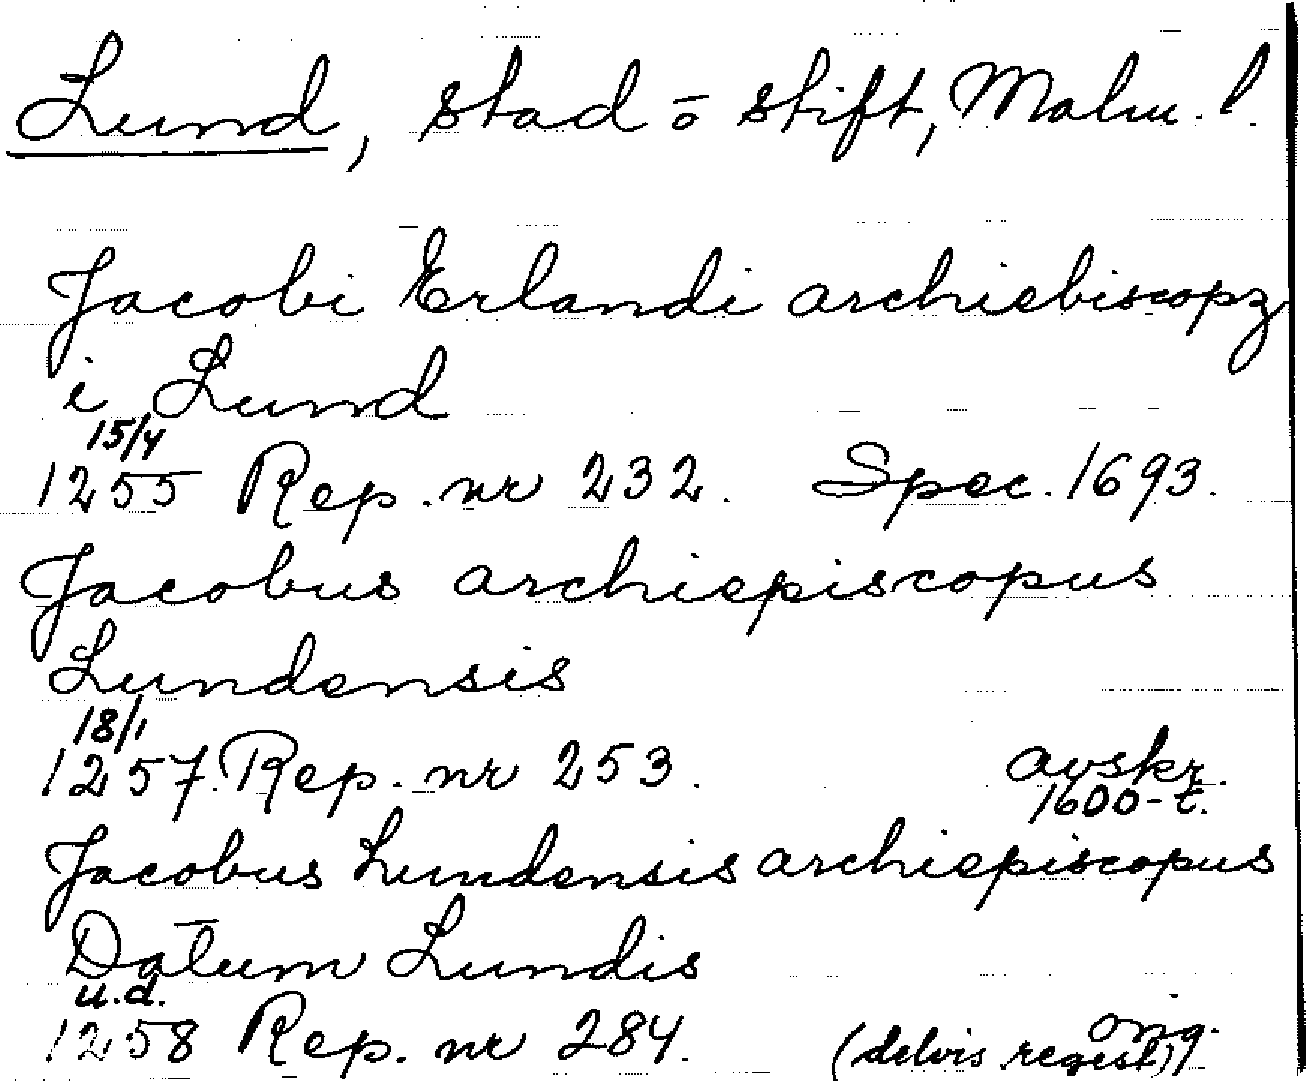 Lund, stad o stift, Malm. l.
Jacobi Erlandi archiebiscopz
i Lund
15/4
1255 Rep. nr 232. Spec. 1693.
Jacobus archiepiscopus
Lundensis
18/1
1257. Rep. nr 253. avskr.
1600-t.
Jacobus Lundensis archiepiscopus
Datum Lundis
u.d.
1258 Rep. nr 284. orig.
(delvis regest)